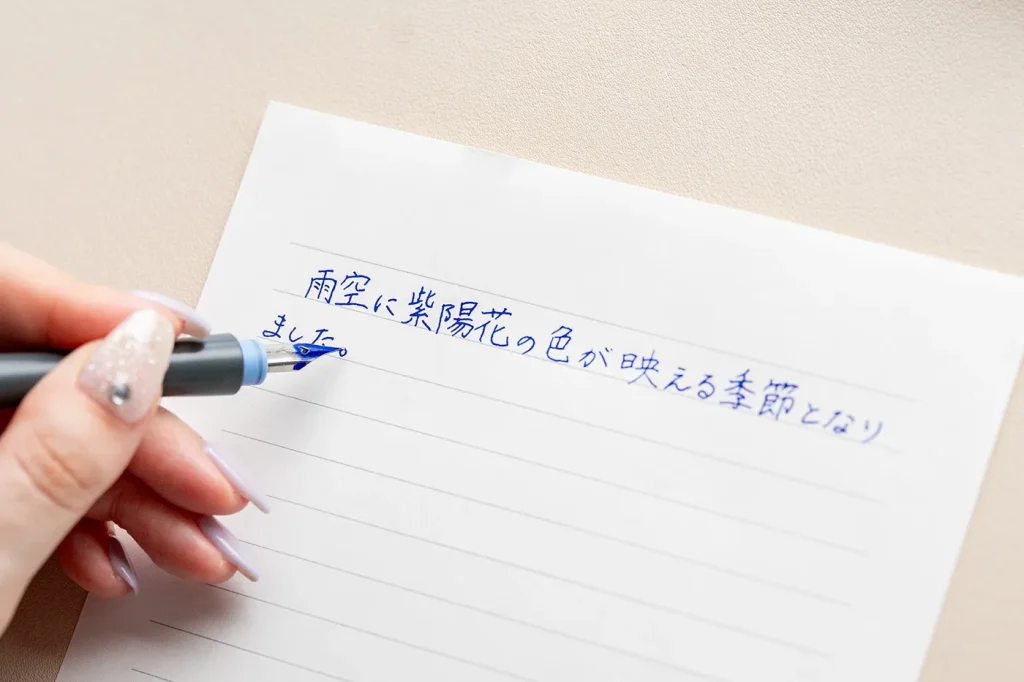 雨空に紫陽花の色が映える季節となり
ました。